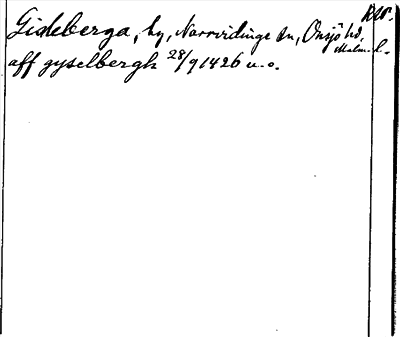 Gisleberga, by, Norrvidinge sn, Onsjö hd, Malm. l.
aff gyselbergh 28/9 1426 u. o.